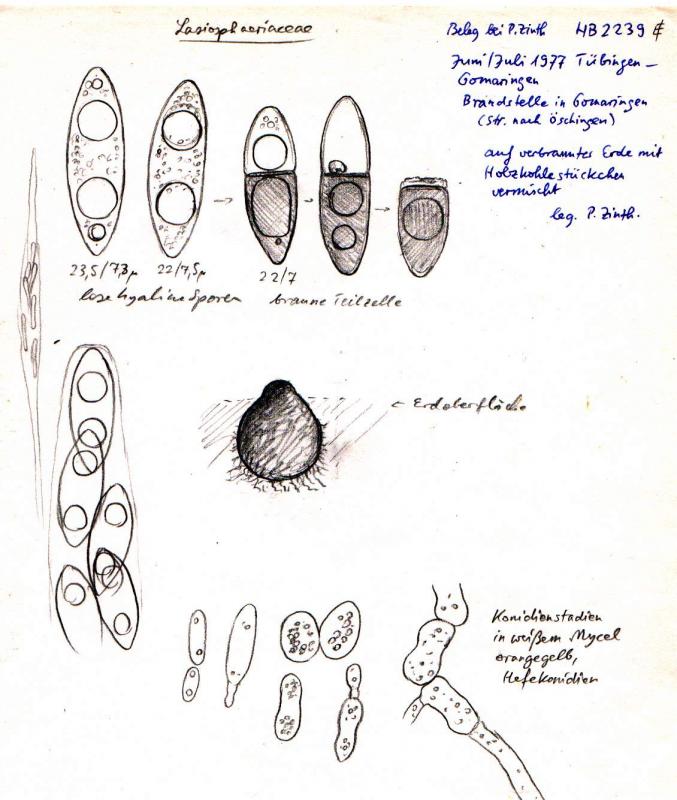 Lasiosphaeriaceae
Beleg bei P. Zinth HB 2239 ¢
Juni/Juli 1977 Tübingen –
Gomaringen
Brandstelle in Gomaringen
(Str. nach Öschingen)
auf verbrannter Erde mit
Holzkohlestückchen
vermischt
leg. P. Zinth.
23,5/7,3µ 22/7,5µ 22/7
lose hyaline Sporen braune Teilzelle
← Erdoberfläche
Konidienstadien
in weißem Mycel
orangegelb,
Hefekonidien